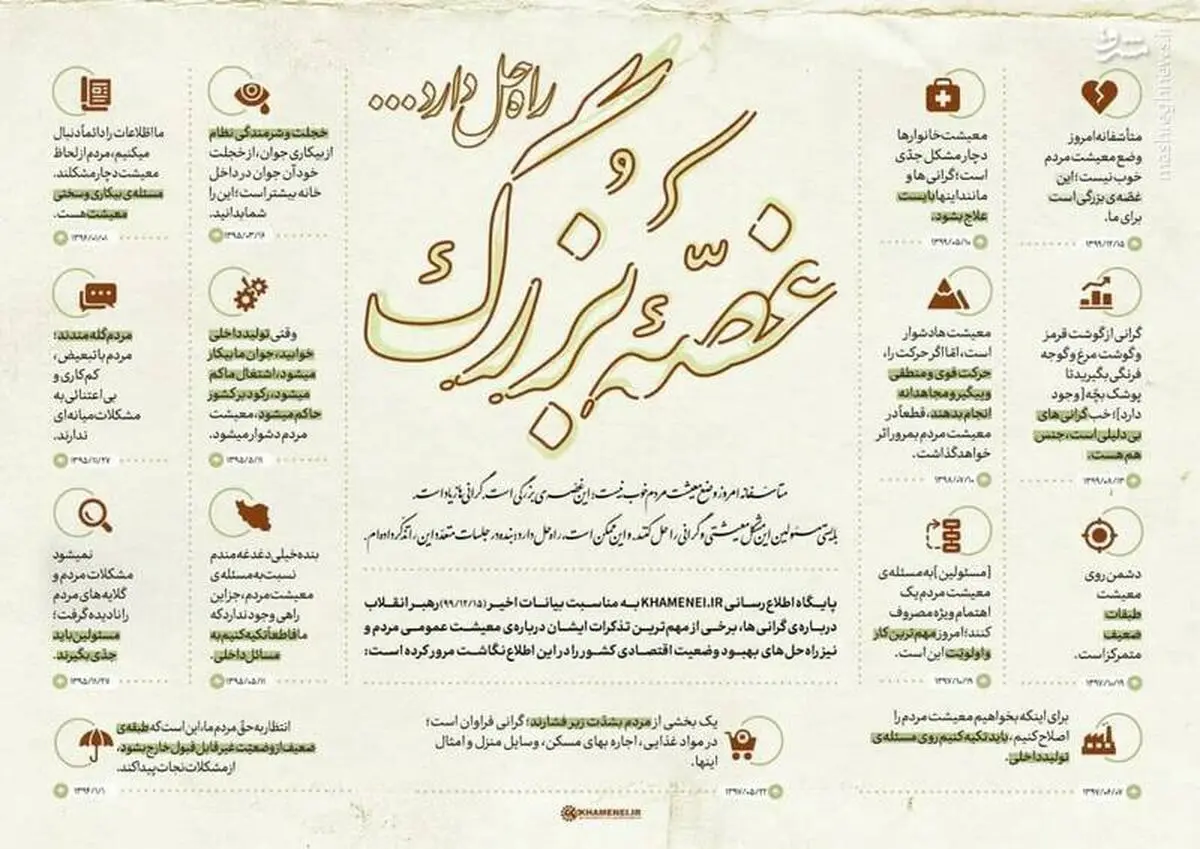 غصّهٔ بُزرگ
و
راه‌حل دارد...
متأسّفانه امروز وضع معیشت مردم خوب نیست؛ این غصّه‌ی بزرگی است. گرانی‌ها زیاد است.
بایستی مسئولین این مشکل معیشتی و گرانی را حل کنند. و این ممکن است، راه‌حل دارد؛ بنده در جلسات متعدّد این را تذکّر داده‌ام.
پایگاه اطلاع‌رسانی KHAMENEI.IR به مناسبت بیانات اخیر (۹۹/۱۲/۱۵) رهبر انقلاب
درباره‌ی گرانی‌ها، برخی از مهم‌ترین تذکرات ایشان درباره‌ی معیشت عمومی مردم و
نیز راه‌حل‌های بهبود وضعیت اقتصادی کشور را در این اطلاع‌نگاشت مرور کرده است:
متأسّفانه امروز
وضع معیشت مردم
خوب نیست؛ این
غصّه‌ی بزرگی است
برای ما.
۱۳۹۹/۱۲/۱۵
گرانی از گوشت قرمز
و گوشت مرغ و گوجه
فرنگی بگیرید تا
پوشک بچّه [وجود
دارد]؛ خب گرانی‌های
بی‌دلیلی است، جنس
هم هست.
۱۳۹۹/۰۸/۱۳
دشمن روی
معیشت
طبقات
ضعیف
متمرکز است.
۱۳۹۷/۱۰/۱۹
معیشت خانوارها
دچار مشکل جدّی
است؛ گرانی‌ها و
مانند اینها بایست
علاج بشود.
۱۳۹۹/۰۵/۱۰
معیشت‌ها دشوار
است، امّا اگر حرکت را،
حرکت قوی و منطقی
و پیگیر و مجاهدانه
انجام بدهند، قطعاً در
معیشت مردم بمرور اثر
خواهد گذاشت.
۱۳۹۸/۰۷/۱۰
[مسئولین] به مسئله‌ی
معیشت مردم یک
اهتمام ویژه مصروف
کنند؛ امروز مهم‌ترین کار
و اولویّت این است.
۱۳۹۷/۱۰/۱۹
خجلت و شرمندگی نظام
از بیکاری جوان، از خجلت
خود آن جوان در داخل
خانه بیشتر است؛ این را
شما بدانید.
۱۳۹۵/۰۳/۱۶
وقتی تولید داخلی
خوابید، جوان ما بیکار
میشود، اشتغال ما کم
میشود، رکود بر کشور
حاکم میشود، معیشت
مردم دشوار میشود.
۱۳۹۵/۵/۱۱
بنده خیلی دغدغه‌مندم
نسبت به مسئله‌ی
معیشت مردم، جز این
راهی وجود ندارد که
ما قاطعاً تکیه کنیم به
مسائل داخلی.
۱۳۹۵/۰۵/۱۱
ما اطّلاعات را دائماً دنبال
میکنیم، مردم از لحاظ
معیشت دچار مشکلند.
مسئله‌ی بیکاری و سختی
معیشت هست.
۱۳۹۶/۰۱/۰۱
مردم گله‌مندند؛
مردم با تبعیض،
کم‌کاری و
بی‌اعتنائی به
مشکلات میانه‌ای
ندارند.
۱۳۹۵/۱۱/۲۷
نمیشود
مشکلات مردم و
گلایه‌های مردم
را نادیده گرفت؛
مسئولین باید
جدّی بگیرند.
۱۳۹۵/۱۱/۲۷
برای اینکه بخواهیم معیشت مردم را
اصلاح کنیم، باید تکیه کنیم روی مسئله‌ی
تولید داخلی.
۱۳۹۷/۰۶/۰۷
یک بخشی از مردم بشدّت زیر فشارند؛ گرانی فراوان است؛
در مواد غذایی، اجاره بهای مسکن، وسایل منزل و امثال
اینها.
۱۳۹۷/۰۵/۲۲
انتظار به حقّ مردم ما، این است که طبقه‌ی
ضعیف از وضعیّت غیر قابل قبول خارج بشود،
از مشکلات نجات پیدا کند.
۱۳۹۶/۱/۱
KHAMENEI.IR
مشرق
mashreghnews.ir